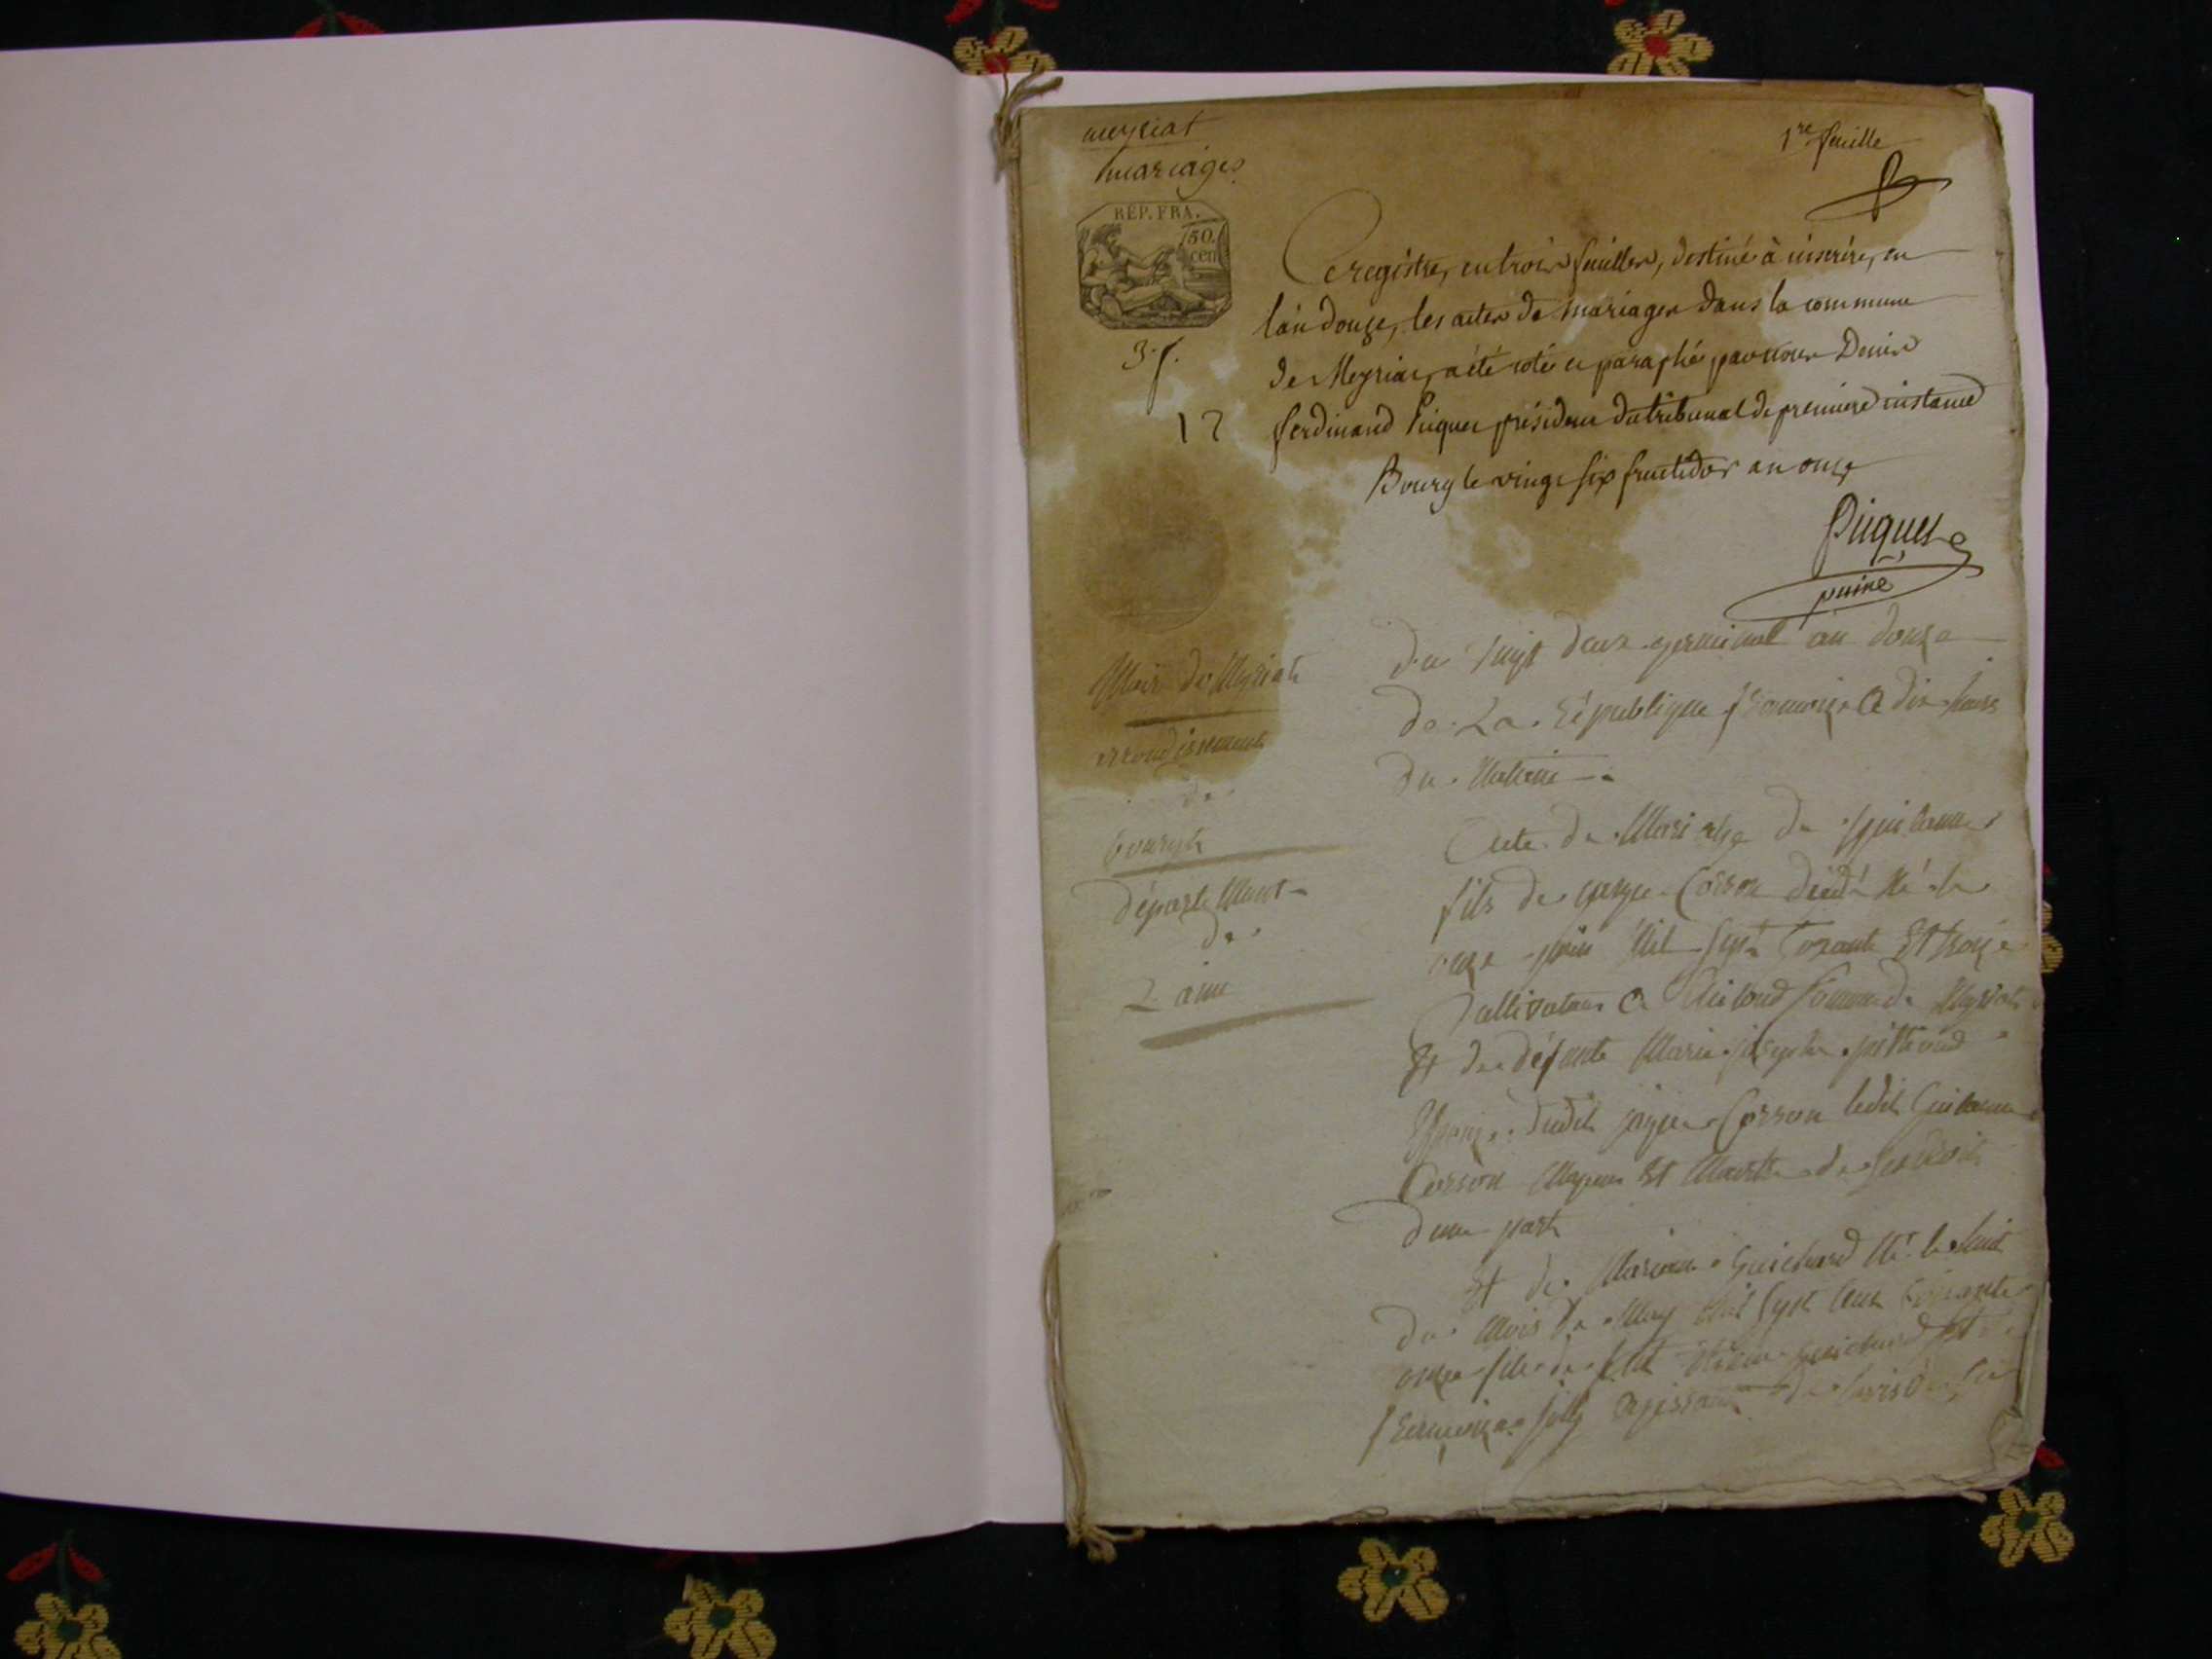 meyriat
mariages
1re feuille
RÉP. FRA.
50.
cen
3 f.
12
Ce registre, en trois feuilles, destiné à inscrire, en
l'an douze, les actes de mariages dans la commune
de Meyriat, a été coté et paraphé par nous Denis
ferdinand Piquet président du tribunal de première instance
Bourg le vingt six fructidor an onze
Piquet
puiné
Mairie de Meyriat
arrondissement
de
bourgt
départe Ment
de
L ain
du vingt deux germinal an douze
de La République françoise a dix heures
du Matin
Acte de Mariage de guilaume
fils de Corron né le
onze juin Mil Sept Soixante Et treize
Cultivateur a de Meyriat
Et de défunte Marie
Epouze dudit Corron ledit Guilaume
Corron Majeur Et Maitre de ses droits
d'une part
Et de Mariane Guichard Né le huit
du Mois de May Mil Sept Cent Soixante
onze fille de guichard Et
françoise